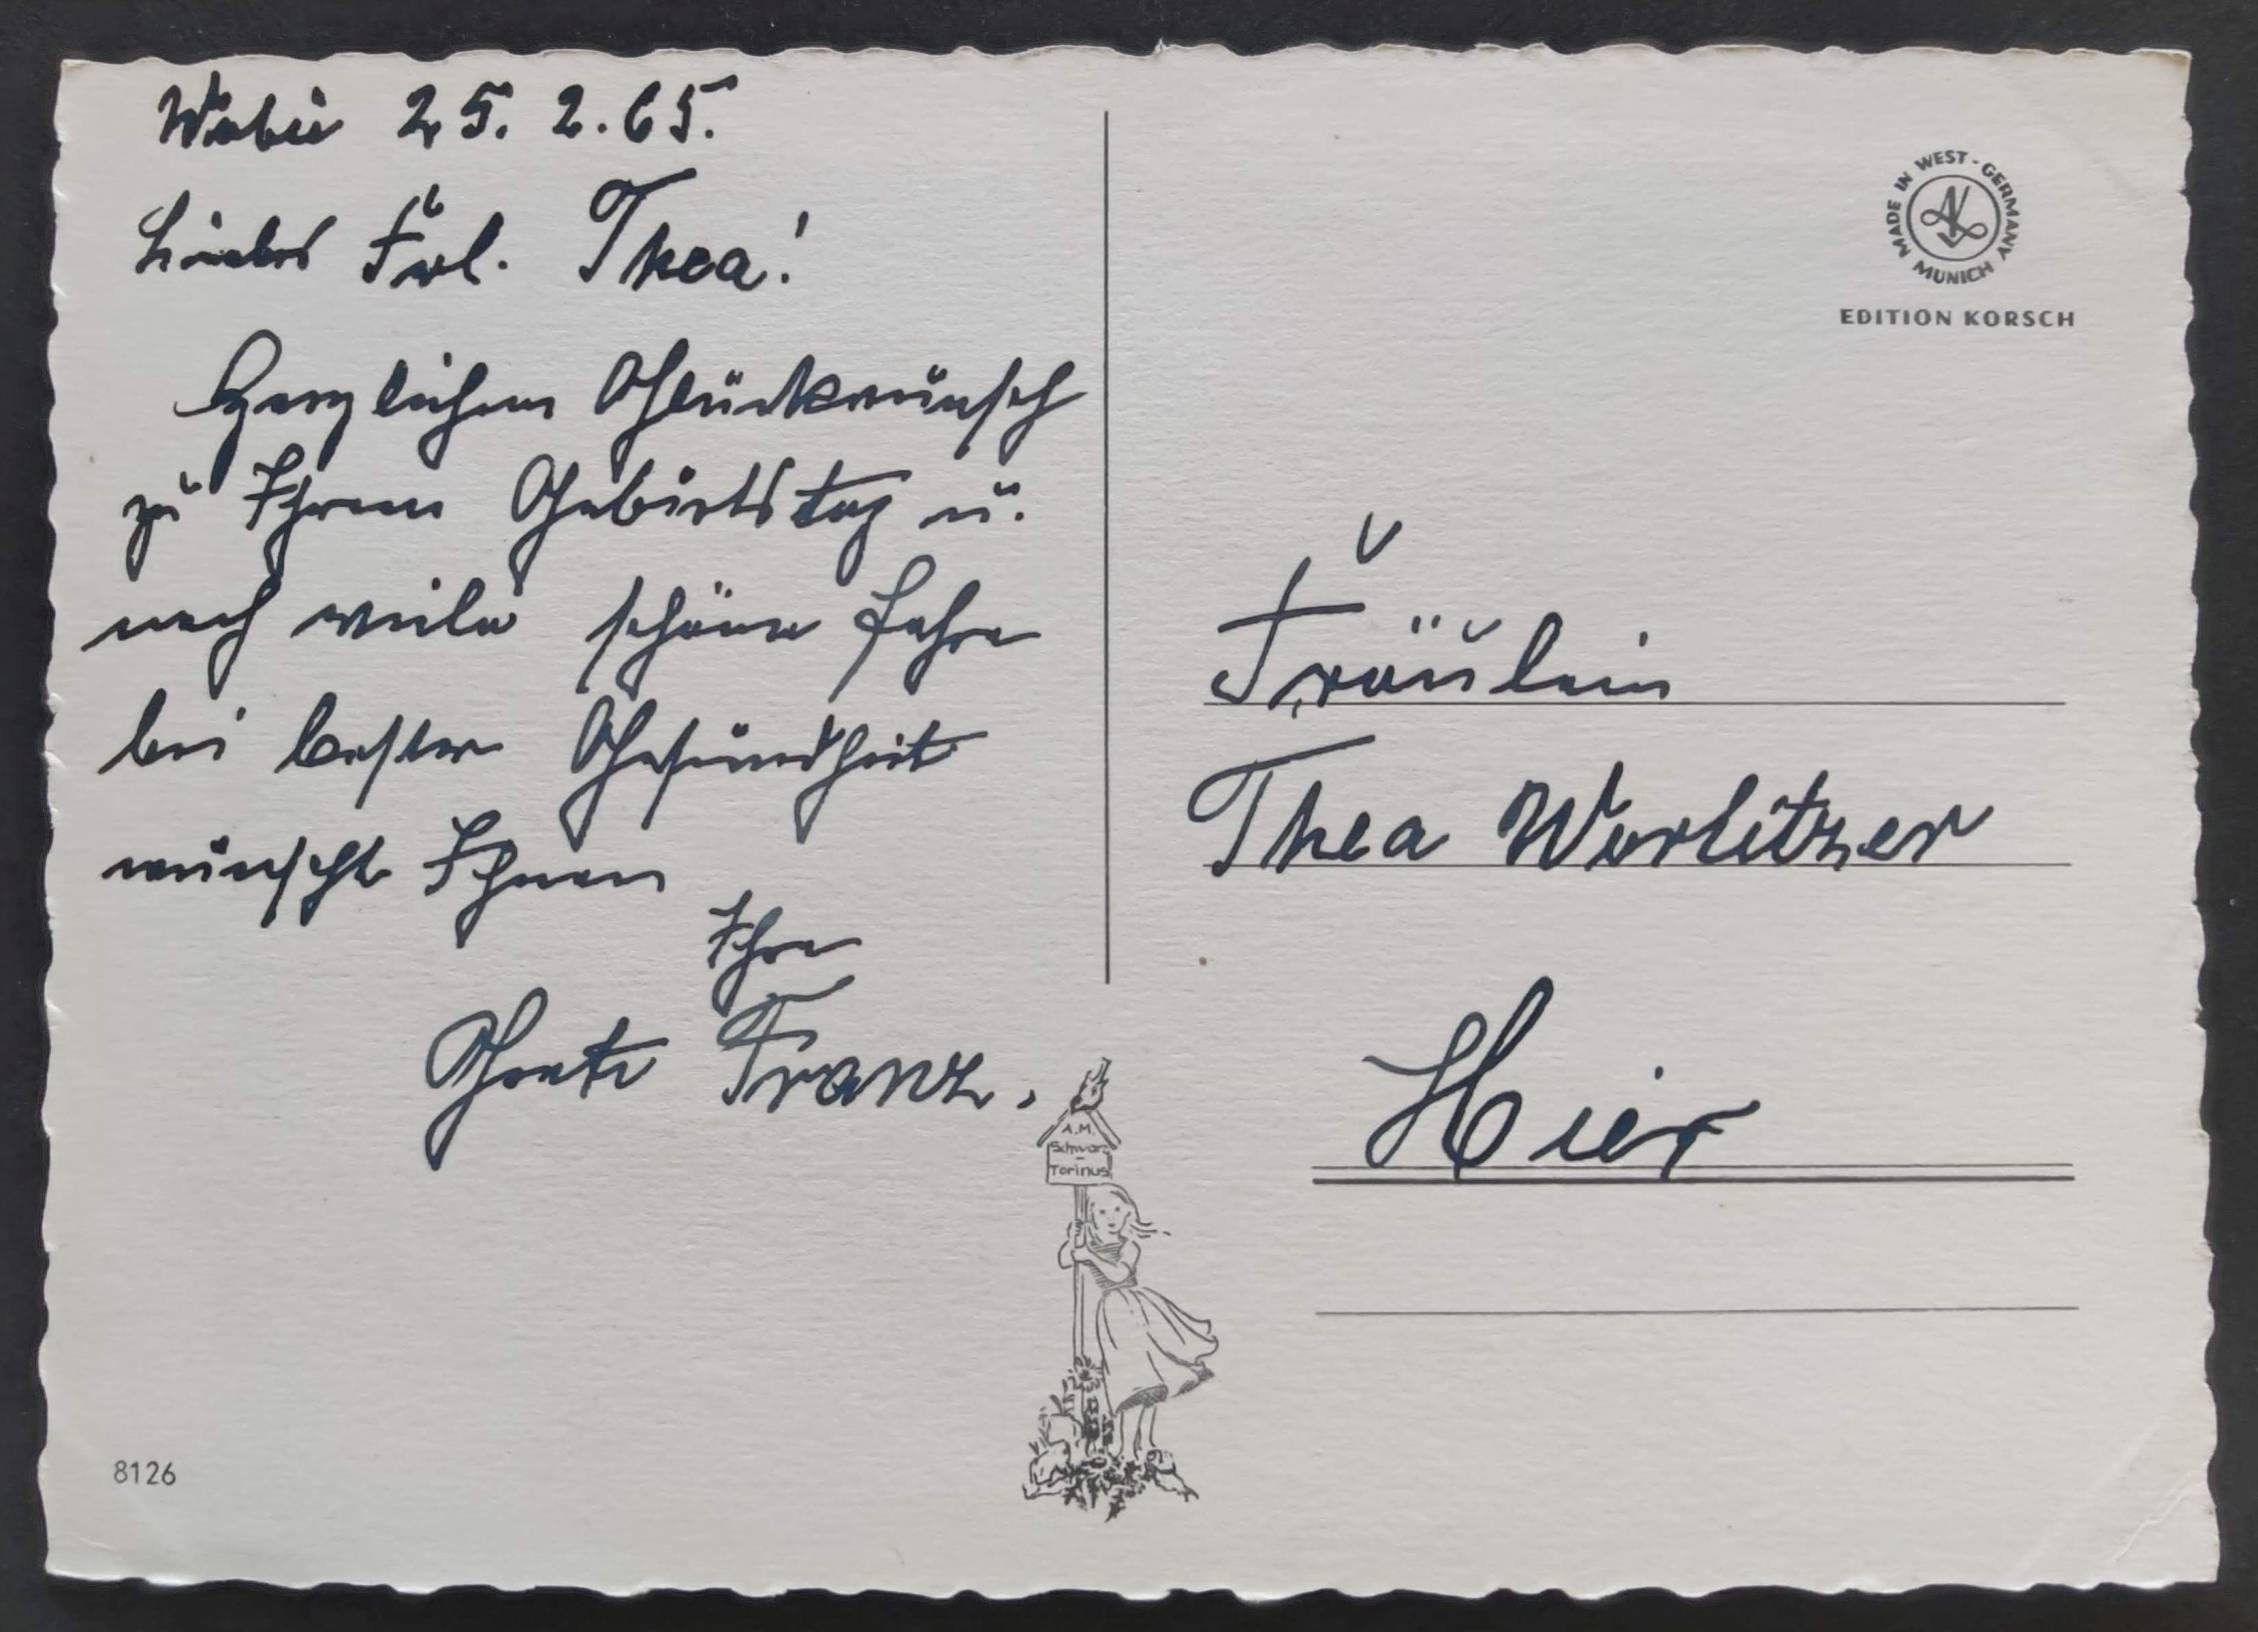 Wabü 25. 2. 65.
Liebes Frl. Thea!
Herzlichen Glückwunsch
zu Ihrem Geburtstag u.
noch viele schöne Jahre
bei bester Gesundheit
wünscht Ihnen
Ihre
Grete Franz.
MADE IN WEST-GERMANY
MUNICH
EDITION KORSCH
Fräulein
Thea Worlitzer
Hier
A.M.
Schwarz
Torinus
8126